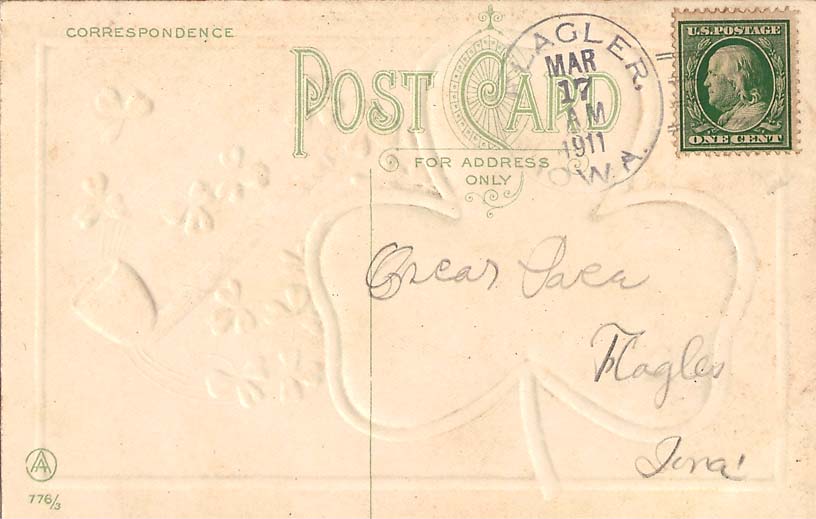 CORRESPONDENCE
POST CARD
FOR ADDRESS
ONLY
FLAGLER,
MAR
17
AM
1911
IOWA.
U.S. POSTAGE
ONE CENT
Oscar
Flagler
Iowa
AA
776/3